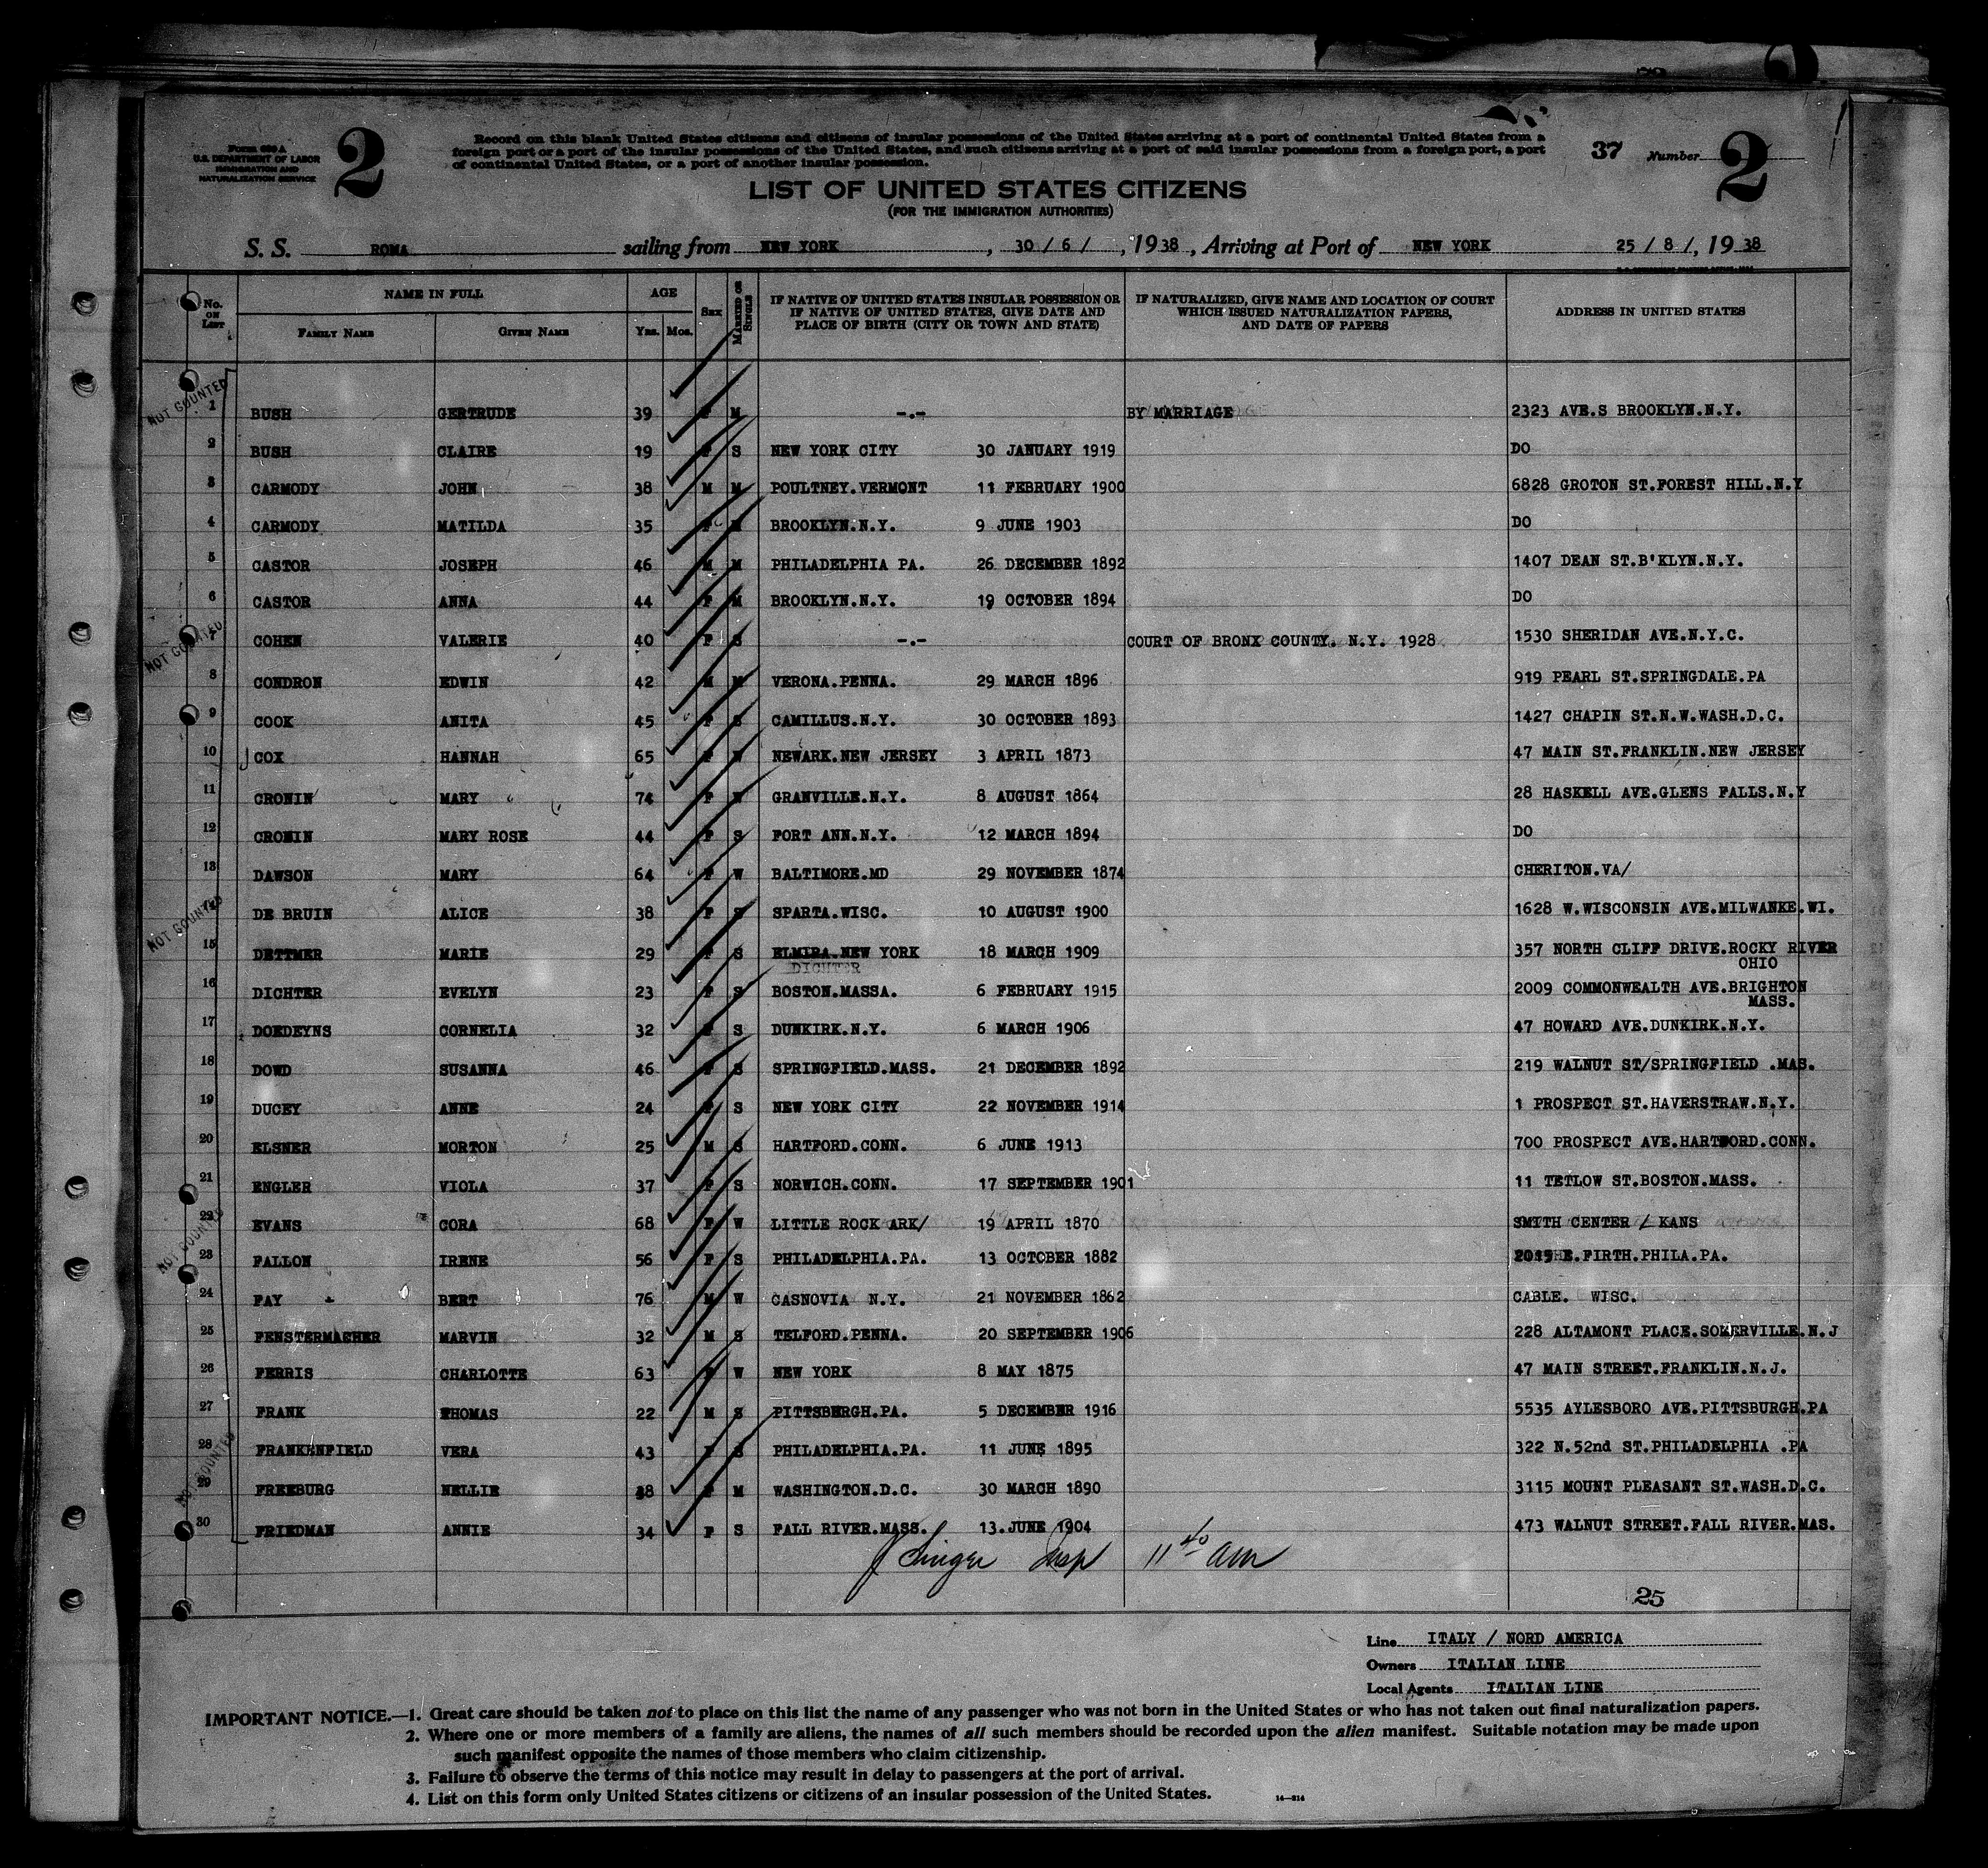 Form 630 A
U.S. DEPARTMENT OF LABOR
IMMIGRATION AND
NATURALIZATION SERVICE
2
Record on this blank United States citizens and citizens of insular possessions of the United States arriving at a port of continental United States from a
foreign port or a port of the insular possessions of the United States, and such citizens arriving at a port of said insular possessions from a foreign port, a port
of continental United States, or a port of another insular possession.
37 Number 2
LIST OF UNITED STATES CITIZENS
(FOR THE IMMIGRATION AUTHORITIES)
S. S. ROMA sailing from NEW YORK , 30 / 6 / , 1938 , Arriving at Port of NEW YORK 25 / 8 /, 19 38
No. ON LIST NAME IN FULL AGE Sex MARRIED OR SINGLE IF NATIVE OF UNITED STATES INSULAR POSSESSION OR IF NATIVE OF UNITED STATES, GIVE DATE AND PLACE OF BIRTH (CITY OR TOWN AND STATE) IF NATURALIZED, GIVE NAME AND LOCATION OF COURT WHICH ISSUED NATURALIZATION PAPERS, AND DATE OF PAPERS ADDRESS IN UNITED STATES
FAMILY NAME GIVEN NAME Yrs. Mos.
NOT COUNTED
1 BUSH GERTRUDE 39 F M -.- BY MARRIAGE 2323 AVE.S BROOKLYN.N.Y.
2 BUSH CLAIRE 19 F S NEW YORK CITY 30 JANUARY 1919 DO
3 CARMODY JOHN 38 M M POULTNEY.VERMONT 11 FEBRUARY 1900 6828 GROTON ST.FOREST HILL.N.Y
4 CARMODY MATILDA 35 F M BROOKLYN.N.Y. 9 JUNE 1903 DO
5 CASTOR JOSEPH 46 M M PHILADELPHIA PA. 26 DECEMBER 1892 1407 DEAN ST.B'KLYN.N.Y.
6 CASTOR ANNA 44 F M BROOKLYN.N.Y. 19 OCTOBER 1894 DO
NOT COUNTED
7 COHEN VALERIE 40 F S -.- COURT OF BRONX COUNTY. N.Y. 1928 1530 SHERIDAN AVE.N.Y.C.
8 CONDRON EDWIN 42 M M VERONA.PENNA. 29 MARCH 1896 919 PEARL ST.SPRINGDALE.PA
9 COOK ANITA 45 F S CAMILLUS.N.Y. 30 OCTOBER 1893 1427 CHAPIN ST.N.W.WASH.D.C.
10 COX HANNAH 65 F W NEWARK.NEW JERSEY 3 APRIL 1873 47 MAIN ST.FRANKLIN.NEW JERSEY
11 CRONIN MARY 74 F W GRANVILLE.N.Y. 8 AUGUST 1864 28 HASKELL AVE.GLENS FALLS.N.Y
12 CRONIN MARY ROSE 44 F S FORT ANN.N.Y. 12 MARCH 1894 DO
13 DAWSON MARY 64 F W BALTIMORE.MD 29 NOVEMBER 1874 CHERITON.VA/
NOT COUNTED
14 DE BRUIN ALICE 38 F S SPARTA.WISC. 10 AUGUST 1900 1628 W.WISCONSIN AVE.MILWANKE.WI.
15 DETTMER MARIE 29 F S ELMIRA.NEW YORK 18 MARCH 1909 357 NORTH CLIFF DRIVE.ROCKY RIVER
DICHTER OHIO
16 DICHTER EVELYN 23 F S BOSTON.MASSA. 6 FEBRUARY 1915 2009 COMMONWEALTH AVE.BRIGHTON
MASS.
17 DOEDEYNS CORNELIA 32 F S DUNKIRK.N.Y. 6 MARCH 1906 47 HOWARD AVE.DUNKIRK.N.Y.
18 DOWD SUSANNA 46 F S SPRINGFIELD.MASS. 21 DECEMBER 1892 219 WALNUT ST/SPRINGFIELD .MAS.
19 DUCEY ANNE 24 F S NEW YORK CITY 22 NOVEMBER 1914 1 PROSPECT ST.HAVERSTRAW.N.Y.
20 ELSNER MORTON 25 M S HARTFORD.CONN. 6 JUNE 1913 700 PROSPECT AVE.HARTFORD.CONN.
21 ENGLER VIOLA 37 F S NORWICH.CONN. 17 SEPTEMBER 1901 11 TETLOW ST.BOSTON.MASS.
NOT COUNTED
22 EVANS CORA 68 F W LITTLE ROCK ARK/ 19 APRIL 1870 SMITH CENTER / KANS
23 FALLON IRENE 56 F S PHILADELPHIA.PA. 13 OCTOBER 1882 E.FIRTH.PHILA.PA.
24 FAY BERT 76 M W CASNOVIA N.Y. 21 NOVEMBER 1862 CABLE. WISC.
25 FENSTERMACHER MARVIN 32 M S TELFORD.PENNA. 20 SEPTEMBER 1906 228 ALTAMONT PLACE.SOMERVILLE.N.J
26 FERRIS CHARLOTTE 63 F W NEW YORK 8 MAY 1875 47 MAIN STREET.FRANKLIN.N.J.
27 FRANK THOMAS 22 M S PITTSBERGH.PA. 5 DECEMBER 1916 5535 AYLESBORO AVE.PITTSBURGH.PA
28 FRANKENFIELD VERA 43 F S PHILADELPHIA.PA. 11 JUNE 1895 322 N.52nd ST.PHILADELPHIA .PA
NOT COUNTED
29 FREEBURG NELLIE 38 F M WASHINGTON.D.C. 30 MARCH 1890 3115 MOUNT PLEASANT ST.WASH.D.C.
30 FRIEDMAN ANNIE 34 F S FALL RIVER.MASS. 13.JUNE 1904 473 WALNUT STREET.FALL RIVER.MAS.
J Singer Insp 11 40 am
25
Line ITALY / NORD AMERICA
Owners ITALIAN LINE
Local Agents ITALIAN LINE
IMPORTANT NOTICE.—1. Great care should be taken not to place on this list the name of any passenger who was not born in the United States or who has not taken out final naturalization papers.
2. Where one or more members of a family are aliens, the names of all such members should be recorded upon the alien manifest. Suitable notation may be made upon
such manifest opposite the names of those members who claim citizenship.
3. Failure to observe the terms of this notice may result in delay to passengers at the port of arrival.
4. List on this form only United States citizens or citizens of an insular possession of the United States.
14—814